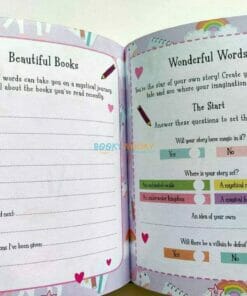 Beautiful Books
words can take you on a mystical journey.
all about the books you've read recently.
next:
ons I've been given:
Wonderful Words
You're the star of your own story! Create your
tale and see where your imagination
The Start
Answer these questions to set the
Will your story have magic in it?
Yes
No
Where is your story set?
A mystical
A magical
An underwater kingdom
An idea of your own:
Will there be a villain to defeat
Yes
No
BOOKY WOOKY